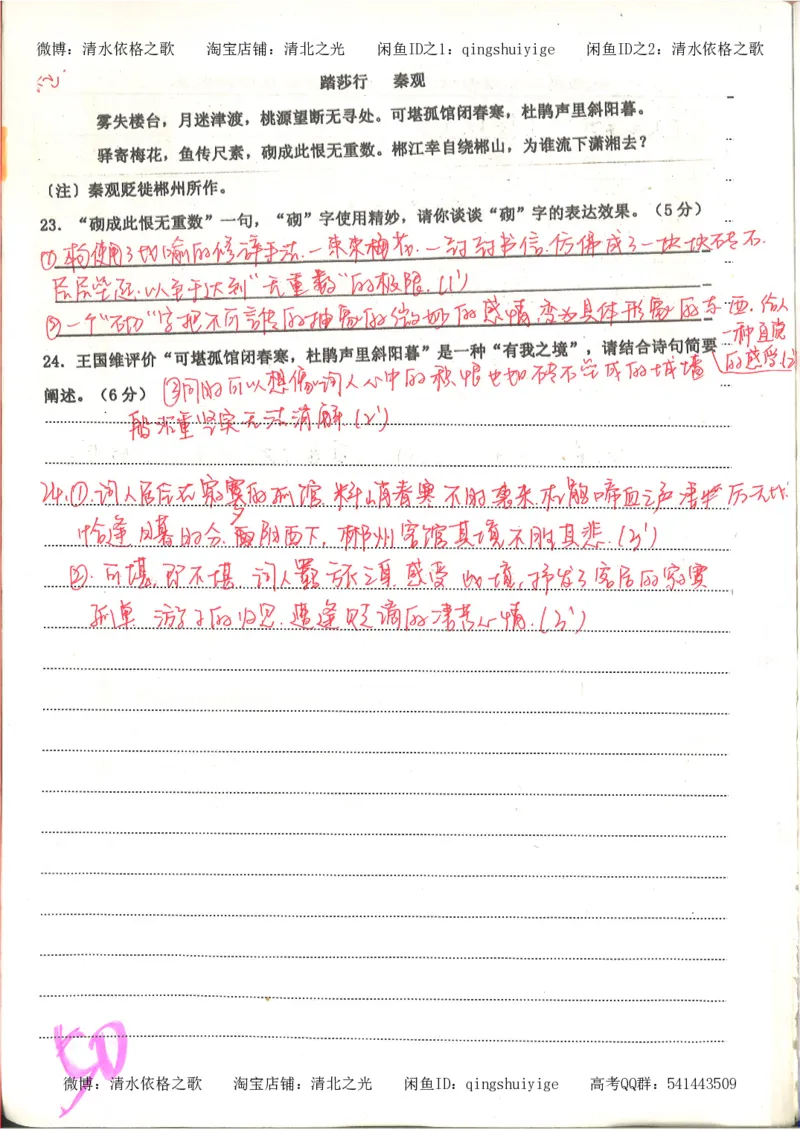 微博：清水依格之歌 淘宝店铺：清北之光 闲鱼ID之1：qingshuiyige 闲鱼ID之2：清水依格之歌
踏莎行 秦观
雾失楼台，月迷津渡，桃源望断无寻处。可堪孤馆闭春寒，杜鹃声里斜阳暮。
驿寄梅花，鱼传尺素，砌成此恨无重数。郴江幸自绕郴山，为谁流下潇湘去？
〔注〕秦观贬徙郴州所作。
23．“砌成此恨无重数”一句，“砌”字使用精妙，请你谈谈“砌”字的表达效果。（5分）
①使用了比喻的修辞手法.一束束梅花.一封封书信.仿佛成了一块块砖石.
层层垒砌.以至于达到“无重数”的极限.(1')
②一个“砌”字把不可言的抽象的微妙的感情.变为具体形象的东西.给人
一种直观
的感受(2')
24．王国维评价“可堪孤馆闭春寒，杜鹃声里斜阳暮”是一种“有我之境”，请结合诗句简要
阐述。（6分）
③同时可以想像词人心中的积恨也如砖石垒成的城墙
般沉重坚实无法消解.(2')
24.①.词人居住在寂寞的孤馆.料峭春寒不时袭来.杜鹃啼血之声凄
恰逢日暮时分.夕阳西下，郴州客馆其境不胜其悲.(3')
②.可堪，即不堪.词人置身感受此境，抒发了客居的寂寞
孤单 游子的归思.遭逢贬谪的凄苦心情.(3')
50
微博：清水依格之歌 淘宝店铺：清北之光 闲鱼ID：qingshuiyige 高考QQ群：541443509